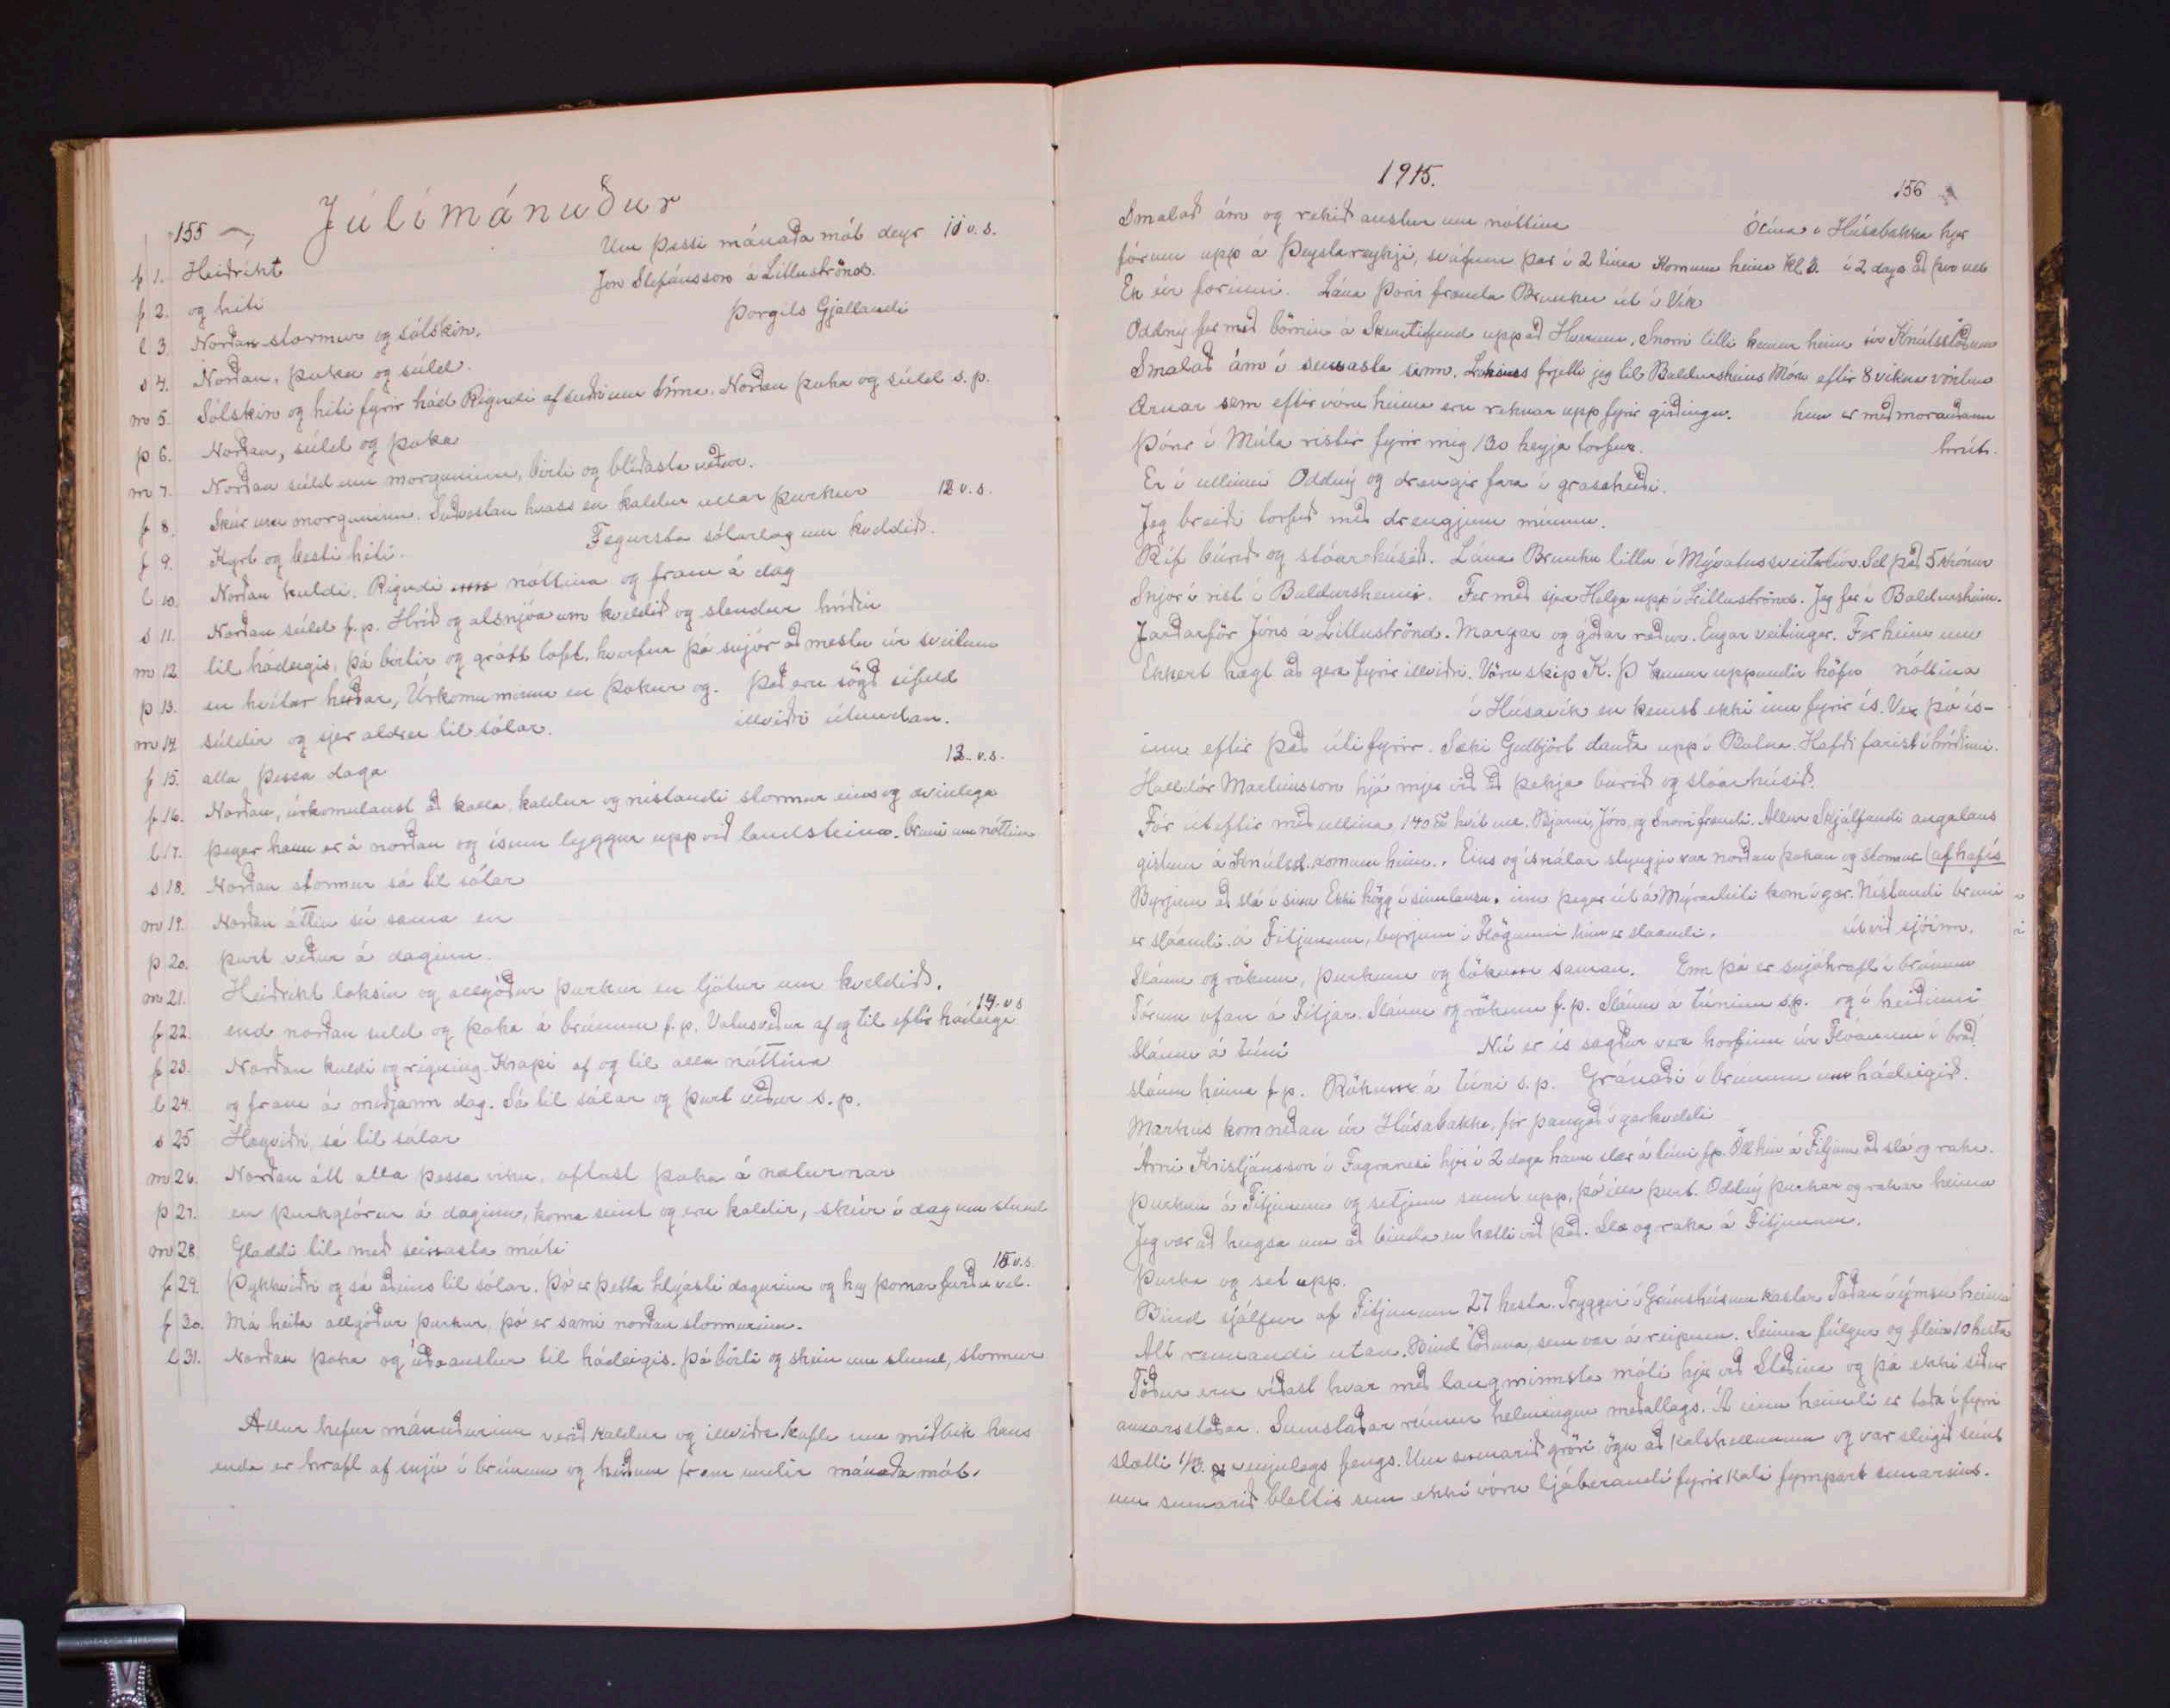 155
Júlímánuður
Um þessi mánaða mót deyr 11 v.s.
f 1. Heiðríkt
Jón Stefánsson á Litluströnd.
f 2. og hiti
Þorgils Gjallandi
l 3. Norðan stormur og sólskin.
s 4. Norðan, þoka og súld.
m 5. Sólskin og hiti fyrir hád. Rigndi af suðri um tíma. Norðan þoka og súld s.p.
þ 6. Norðan, súld og þoka
m 7. Norðan súld um morguninn, birti og blíðasta veður.
f 8. Skúr um morguninn. Suðvestan hvass en kaldur ullar þurkur 12 v.s.
f 9. Kyrt og besti hiti. Fegursta sólarlag um kveldið.
l 10. Norðan kuldi. Rigndi nóttina og fram á dag
s 11. Norðan súld f.p. Hríð og alsnjóa um kveldið og stendur hríðin
m 12. til hádegis, þá birtir og grátt loft, hverfur þá snjór að mestu úr sveitum
þ 13. en hvítar heiðar, Úrkomuminna en þokur og. Það eru sögð sífeld
m 14. súldir og sjer aldrei til sólar. illviðri útundan.
f 15. alla þessa daga 13. v.s.
f 16. Norðan, úrkomulaust að kalla, kaldur og nístandi stormur eins og ævinlega
l 17. þegar hann er á norðan og ísinn lyggur upp við landsteina. bruni um nóttina
s 18. Norðan stormur sá til sólar
m 19. Norðan áttin sú sama en
þ 20. þurt veður á daginn.
m 21. Heiðríkt loksin og allgóður þurkur en ljótur um kveldið.
f 22. end norðan suld og þoka á brúnum f.p. Vatnsveður af og til eftir hádeigi 14. v s
f 23. Norðan kuldi og rigning. Krapi af og til alla nóttina
l 24. og fram á miðjann dag. Sá til sólar og þurt veður s.p.
s 25 Hægviðri, sá til sólar
m 26. Norðan átt alla þessa viku, oftast þoka á næturnar
þ 27. en þurkglórur á daginn, koma seint og eru kaldir, skúr í dag um stund
m 28. Gladdi til með seinasta móti
f 29. Þykkviðri og sá aðeins til sólar. Þó er þetta hlýasti dagurinn og hey þornar furðu vel. 15 v.s.
f 30. Má heita allgóður þurkur, þó er sami norðan stormurinn.
l 31. Norðan þoka og úða austur til hádeigis. Þá birti og skein um stund, stormur
Allur hefur mánuðurinn verið kaldur og illviðra kafli um miðbik hans
enda er hrafl af snjó í brúnum og heiðum fram undir mánaða mót.
1915.
156
Smalað ám og rekið austur um nóttina Ólína í Húsabakka hjer
förum upp á Þeystareykji, sváfum þar í 2 tíma Komum heim Kl. 3. í 2 daga að þvo ull
Ek úr forinni. Lána Þóri frænda Brunku út í Vík
Oddný fer með börnin á Skemtifund upp að Hverum, Snorri litli kemur heim úr Knútsstöðum
Smalað ám í seinasta sinn. Loksins frjetti jeg til Baldursheims Móru eftir 8 vikna
Ærnar sem eftir vóru heima eru reknar upp fyrir girðingu. hún er með morauðann
Þórir í Múla ristir fyrir mig 130 heyja torfur. hrút.
Er í ullinni Oddný og drengir fara í grasaheiði.
Jeg breiði torfið með drengjum mínum.
Ríf búrið og stóarhúsið. Lána Brunku litlu í Mývatnssveitartúr. Sel það 5 krónur
Snjór í rist í Baldursheimi. Fer með sjera Helga upp í Litluströnd. Jeg fer í Baldursheim.
Jarðarför Jóns á Litluströnd. Margar og góðar ræður. Engar veitingar. Fer heim um
Ekkert hægt að gera fyrir illviðri. Vöruskip K. Þ kemur uppundir höfn nóttina
í Húsavík en kemst ekki inn fyrir ís. Vex þó ís-
inn eftir það úti fyrir. Sæki Gulbjört dauða upp í Botna. Hafði farist í hríðinni.
Halldór Marteinsson hjá mjer við að þekja búrið og stóarhúsið.
Fór úteftir með ullina, 140 ℔ hvít ull. Bjarni, Jóns, og Snorri frændi. Allur Skjálfandi augalaus
gistum á Knútsst. komum heim. Eins og ísnálar styngju var norðan þokan og stormur (af hafís
Byrjum að slá í sinu Ekki högg í sinulausu. inn þegar út á Mýrarleiti kom í gær. Nístandi bruni
er sláandi á Fitjunum, byrjum í Flögunni hún er slaandi. út við sjóinn.
Sláum og rökum, þurkum og tökum saman. Enn þá er snjóhrafl í brúnum
Förum ofan á Fitjar. Sláum og rökum f.p. Sláum á túninu s.p. og í heiðinni
Sláum á túni Nú er ís sagður vera horfinn úr Flóanum í bráð
sláum heima f.p. Rökum á túni s.p. Gránaði í brúnum um hádeigið.
Markús kom neðan úr Húsabakka, fór þangað í gærkveldi
Árni Kristjánsson í Fagranesi hjer í 2 daga hann slær á túni f.p. Öll hin á Fitjum að slá og raka.
Þurkum á Fitjunum og setjum samt upp, þó illa þurt. Oddný þurkar og rakar heima
Jeg var að hugsa um að binda en hætti við það. Slæ og raka á Fitjunum.
Þurka og set upp.
Bind sjálfur af Fitjunum 27 hesta. Tryggvi í Grímshúsum kastar Taðan í ýmsu heima
Alt rennandi utan. Bind töðuna, sem var á reipum. Seinna fúlgur og fleira 10 hesta
Töður eru víðast hvar með langminnsta móti hjer við Sléðina og þá ekki síður
annarsstaðar. Sumstaðar rúmur helmingur meðallags. Á einu heimili er taða í fyrri
slætti 1/3. venjulegs fengs. Um sumarið gröri ögn að kalskellunum og var sleigið seint
um sumarið blettir sem ekki vóru ljáberandi fyrir kali fyrripart sumarsins.